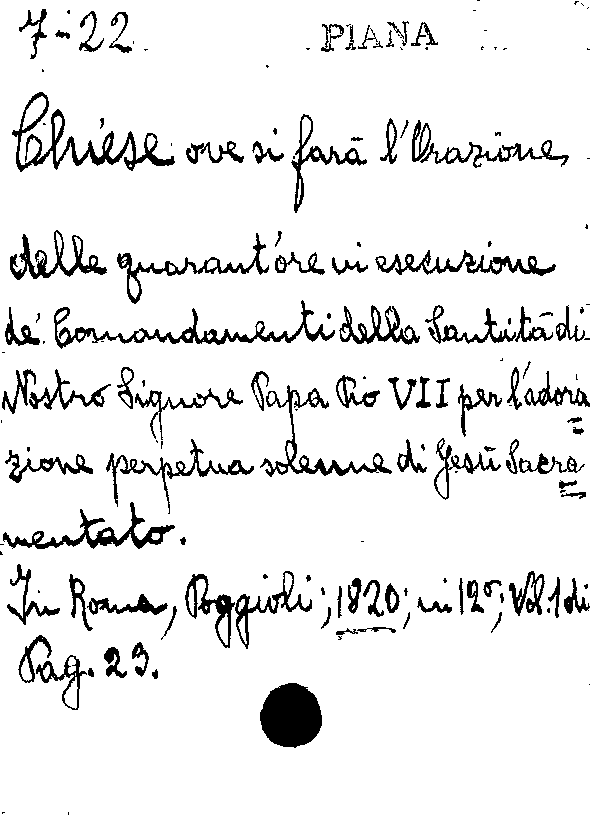 7-22 PIANA
Chiese ove si farà l'Orazione
delle quarant'ore in esecuzione
de' Comandamenti della Santità di
Nostro Signore Papa Pio VII per l'adora=
zione perpetua solenne di Gesù Sacra=
mentato.
In Roma, Poggioli; 1820; in 12º; Vol. 1 di
Pag. 23.